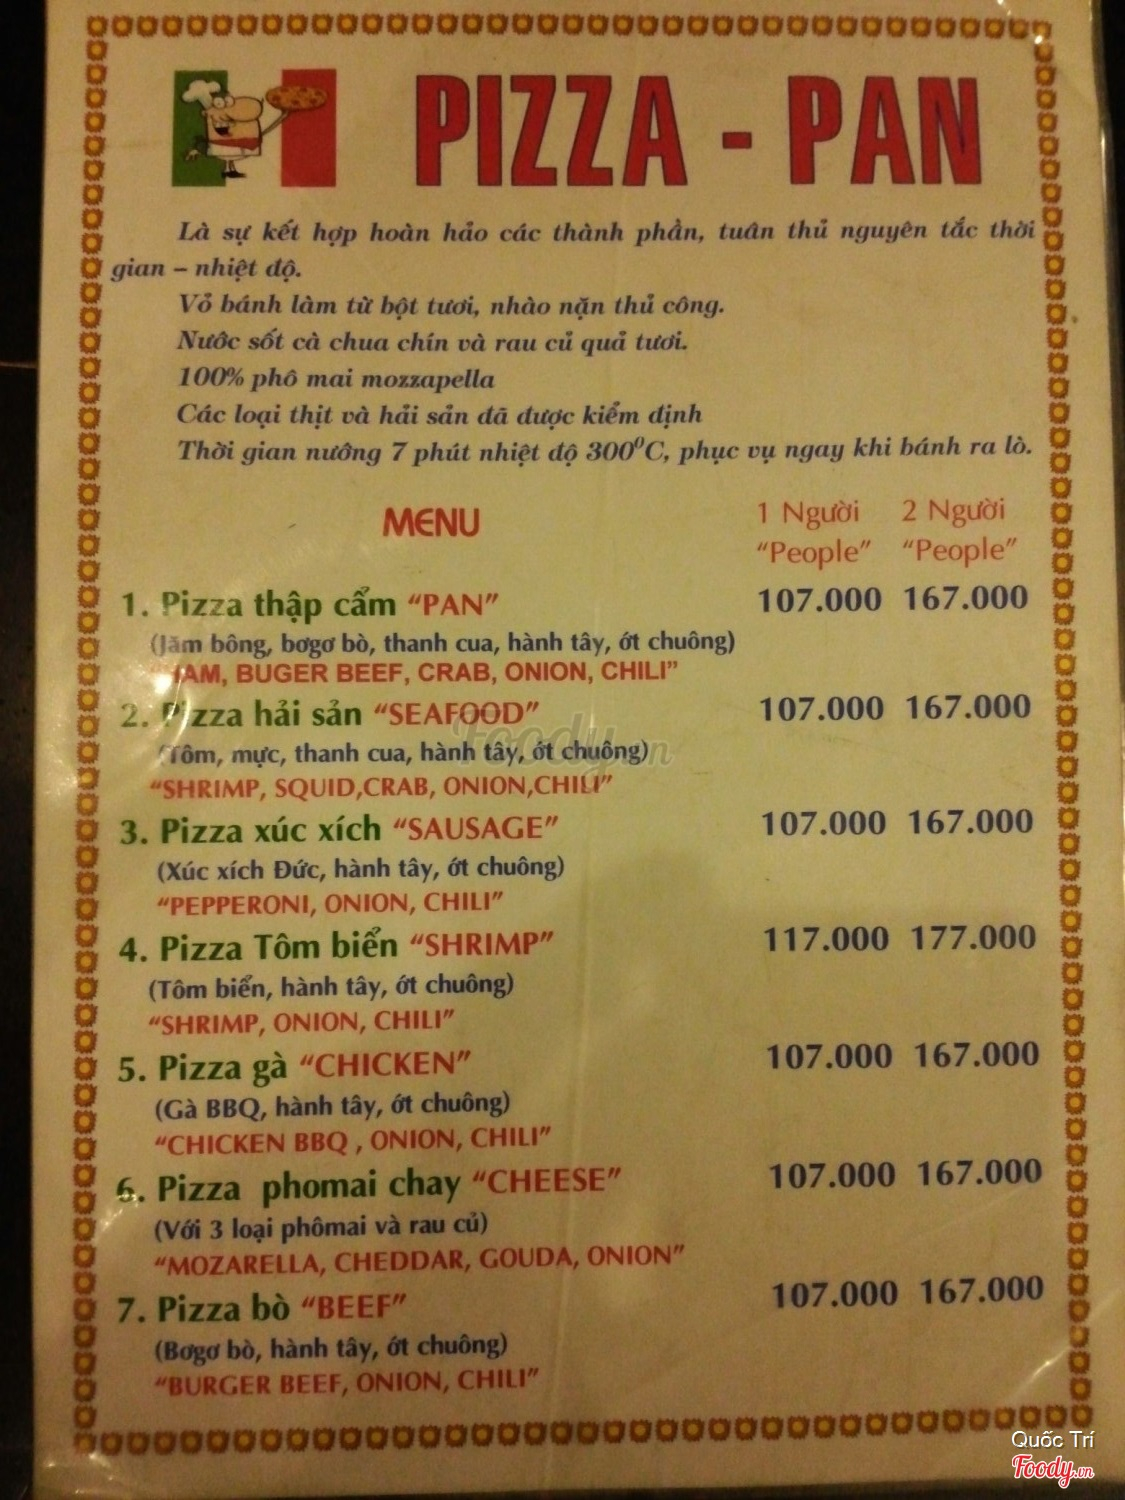 PIZZA - PAN
Là sự kết hợp hoàn hảo các thành phần, tuân thủ nguyên tắc thời
gian – nhiệt độ.
Vỏ bánh làm từ bột tươi, nhào nặn thủ công.
Nước sốt cà chua chín và rau củ quả tươi.
100% phô mai mozzapella
Các loại thịt và hải sản đã được kiểm định
Thời gian nướng 7 phút nhiệt độ 300⁰C, phục vụ ngay khi bánh ra lò.
MENU 1 Người 2 Người
“People” “People”
1. Pizza thập cẩm “PAN” 107.000 167.000
(Jăm bông, bơgơ bò, thanh cua, hành tây, ớt chuông)
“HAM, BUGER BEEF, CRAB, ONION, CHILI”
2. Pizza hải sản “SEAFOOD” 107.000 167.000
(Tôm, mực, thanh cua, hành tây, ớt chuông)
“SHRIMP, SQUID,CRAB, ONION,CHILI”
3. Pizza xúc xích “SAUSAGE” 107.000 167.000
(Xúc xích Đức, hành tây, ớt chuông)
“PEPPERONI, ONION, CHILI”
4. Pizza Tôm biển “SHRIMP” 117.000 177.000
(Tôm biển, hành tây, ớt chuông)
“SHRIMP, ONION, CHILI”
5. Pizza gà “CHICKEN” 107.000 167.000
(Gà BBQ, hành tây, ớt chuông)
“CHICKEN BBQ , ONION, CHILI”
6. Pizza phomai chay “CHEESE” 107.000 167.000
(Với 3 loại phômai và rau củ)
“MOZARELLA, CHEDDAR, GOUDA, ONION”
7. Pizza bò “BEEF” 107.000 167.000
(Bơgơ bò, hành tây, ớt chuông)
“BURGER BEEF, ONION, CHILI”
Foody.vn
Quốc Trí
Foody.vn